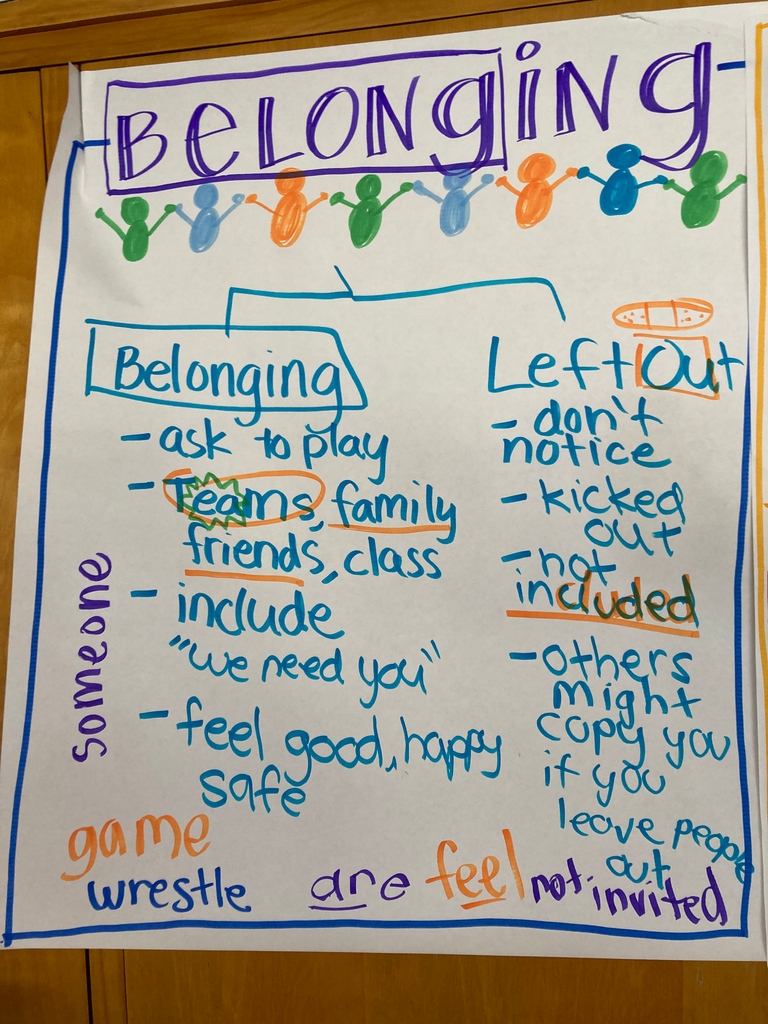 BeLONgiNg
Belonging
- ask to play
- Teams, family
friends, class
- include
"we need you"
- feel good, happy
safe
Left Out
- don't
notice
- kicked
out
- not
included
- others
might
copy you
if you
leave people
out
someone
game
wrestle
are
feel
not invited